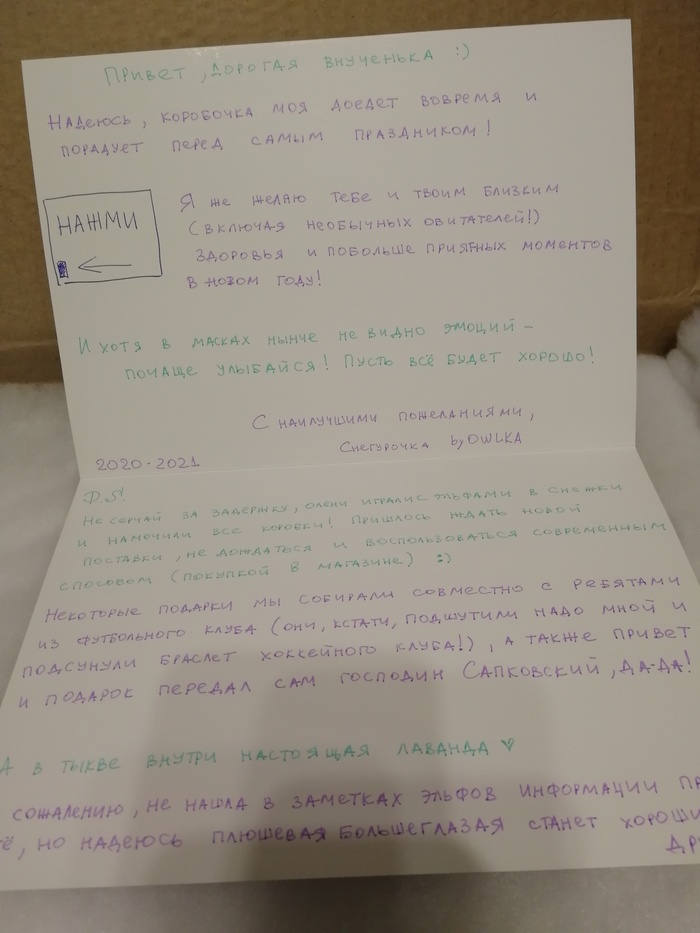 Привет, дорогая внученька :)
Надеюсь, коробочка моя доедет вовремя и
порадует перед самым праздником!
НАЖМИ
Я же желаю тебе и твоим близким
(включая необычных обитателей!)
здоровья и побольше приятных моментов
в новом году!
И хотя в масках нынче не видно эмоций –
почаще улыбайся! Пусть всё будет хорошо!
С наилучшими пожеланиями,
Снегурочка by OWLKA
2020-2021
P.S!
Не серчай за задержку, олени играли с эльфами в снежки
и намочили все коробки! Пришлось ждать новой
поставки, не дождаться и воспользоваться современным
способом (покупкой в магазине) :)
Некоторые подарки мы собирали совместно с ребятами
из футбольного клуба (они, кстати, подшутили надо мной и
подсунули браслет хоккейного клуба!), а также привет
и подарок передал сам господин Сапковский, да-да!
А в тыкве внутри настоящая лаванда ♥
сожалению, не нашла в заметках эльфов информации
но надеюсь плюшевая большеглазая станет